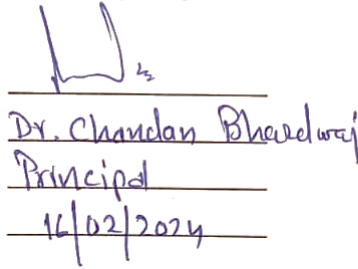 Dr. Chandan Bhardwaj
Principal
16/02/2024